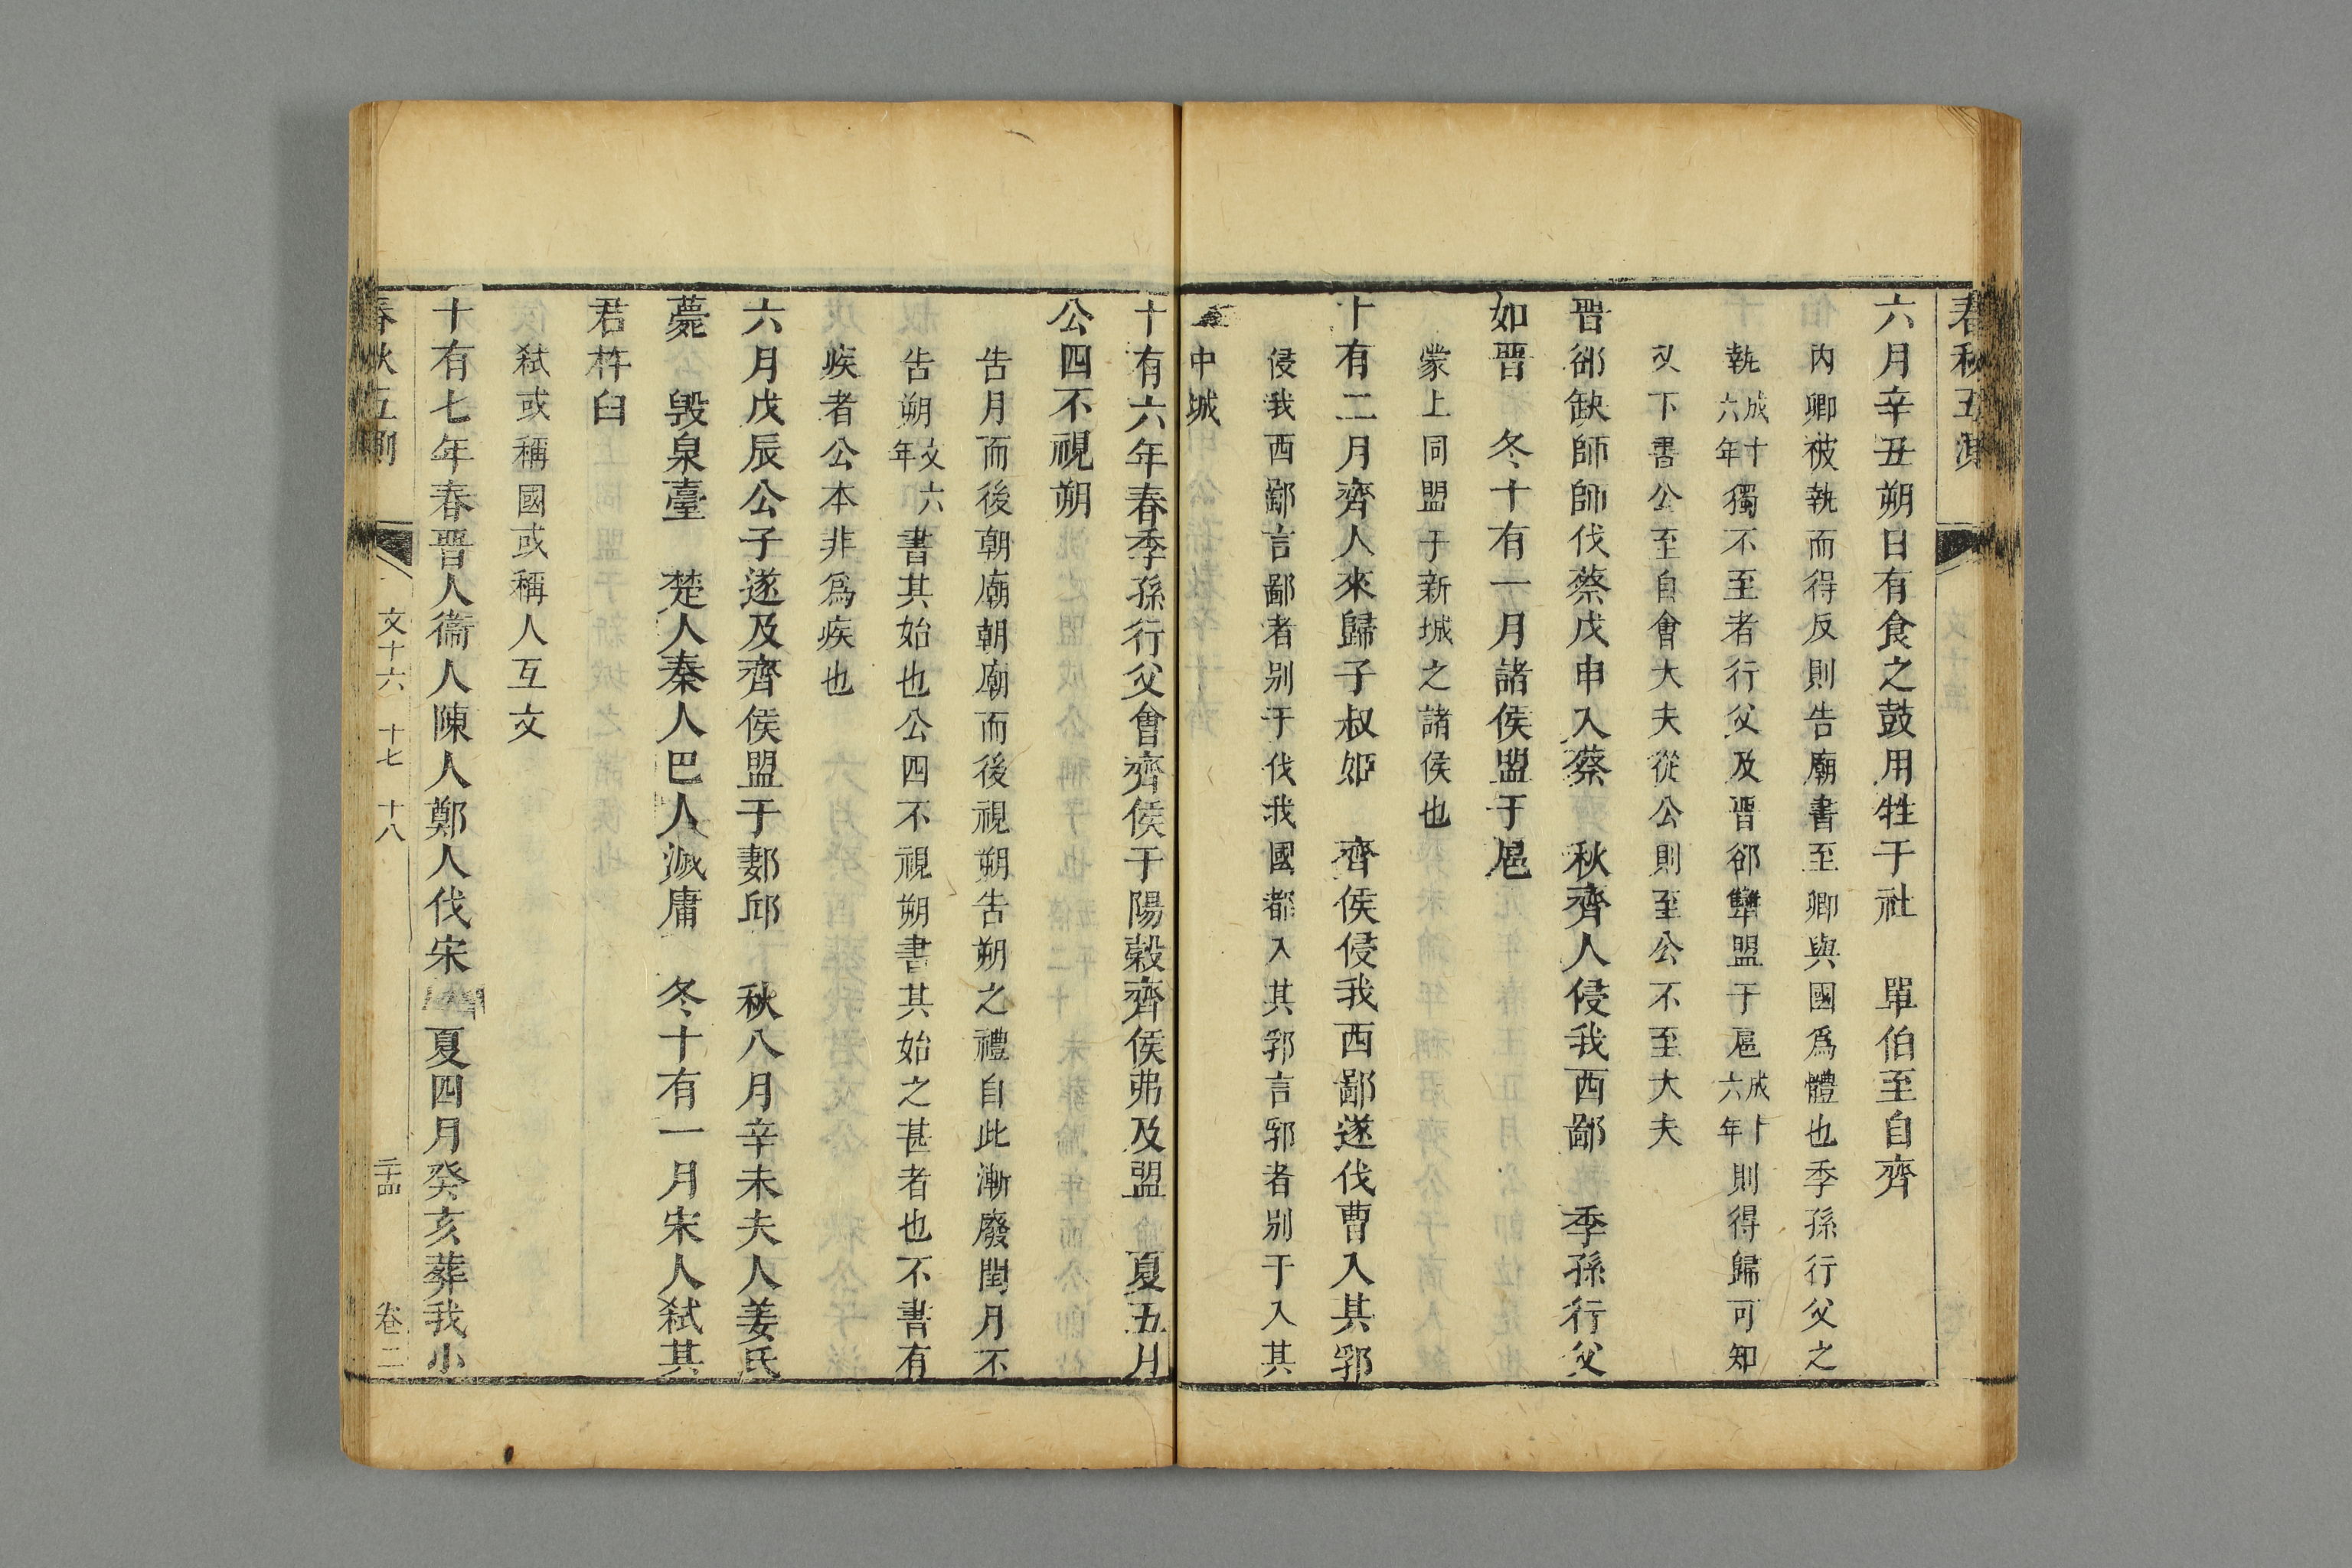 春秋五測
六月辛丑朔日有食之鼓用牲于社　單伯至自齊
内卿被執而得反則告廟書至卿與國爲體也季孫行父之
執成十六年獨不至者行父及晉郤犫盟于扈成十六年則得歸可知
又下書公至自會大夫從公則至公不至大夫
晉郤缺帥師伐蔡戊申入蔡　秋齊人侵我西鄙　季孫行父
如晉　冬十有一月諸侯盟于扈
蒙上同盟于新城之諸侯也
十有二月齊人來歸子叔姬　齊侯侵我西鄙遂伐曹入其郛
侵我西鄙言鄙者别于伐我國都入其郛言郛者别于入其
中城
十有六年春季孫行父會齊侯于陽穀齊侯弗及盟　夏五月
公四不視朔
告月而後朝廟朝廟而後視朔告朔之禮自此漸廢閏月不
告朔文六年書其始也公四不視朔書其始之甚者也不書有
疾者公本非爲疾也
六月戊辰公子遂及齊侯盟于郪邱　秋八月辛未夫人姜氏
薨　毁泉臺　楚人秦人巴人滅庸　冬十有一月宋人弑其
君杵臼
弑或稱國或稱人互文
十有七年春晉人衞人陳人鄭人伐宋　夏四月癸亥葬我小
春秋五測　文十六　十七　十八　二十四　卷二